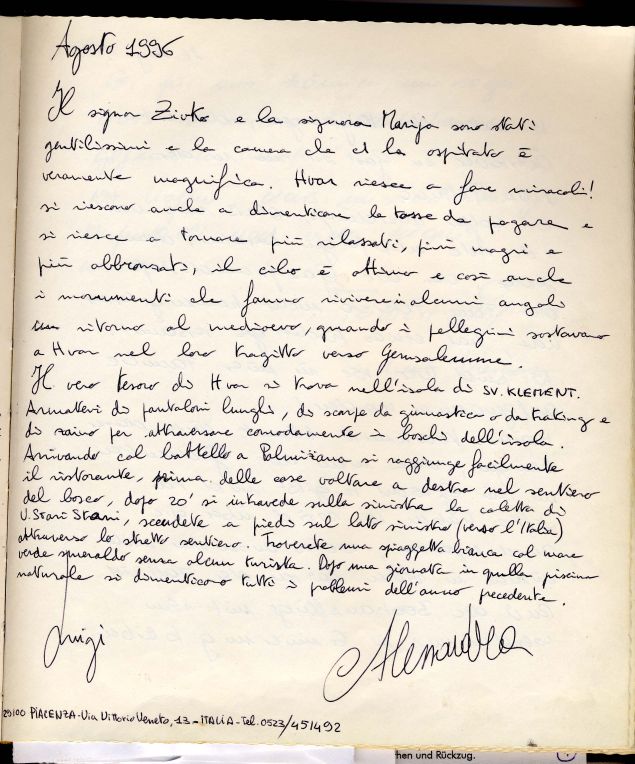 Agosto 1996
Il signor Zivko e la signora Marija sono stati
gentilissimi e la camera che ci ha ospitato è
veramente magnifica. Hvar riesce a fare miracoli!
si riescono anche a dimenticare le tasse da pagare e
si riesce a tornare più rilassati, più magri e
più abbronzati, il cibo è ottimo e così anche
i monumenti che fanno rivivere in alcuni angoli
un ritorno al medioevo, quando i pellegrini sostavano
a Hvar nel loro tragitto verso Gerusalemme.
Il vero tesoro di Hvar si trova nell'isola di SV. KLEMENT.
Armatevi di pantaloni lunghi, di scarpe da ginnastica o da traking e
di zaino per attraversare comodamente i boschi dell'isola.
Arrivando col battello a Palmižana si raggiunge facilmente
il ristorante, prima delle case voltare a destra nel sentiero
del bosco, dopo 20' si intravede sulla sinistra la caletta di
U. Stari Stani, scendete a piedi sul lato sinistro (verso l'Italia)
attraverso lo stretto sentiero. Troverete una spiaggetta bianca col mare
verde smeraldo senza alcun turista. Dopo una giornata in quella piscina
naturale si dimenticano tutti i problemi dell'anno precedente.
Luigi
Alessandra
29100 PIACENZA - Via Vittorio Veneto, 13 - ITALIA - Tel. 0523/451492
hen und Rückzug.